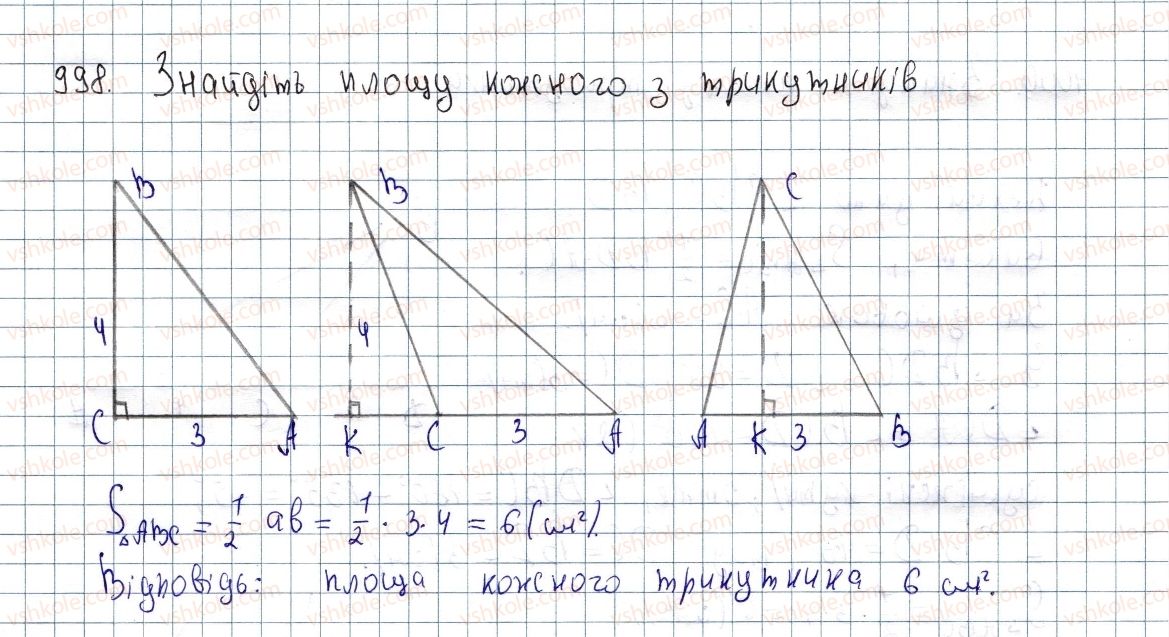 998. Знайдіть площу кожного з трикутників
B B C
4 4
C 3 A K C 3 A A K 3 B
S△ABC = 1/2 ab = 1/2 · 3 · 4 = 6 (см²).
Відповідь: площа кожного трикутника 6 см².
vshkole.com